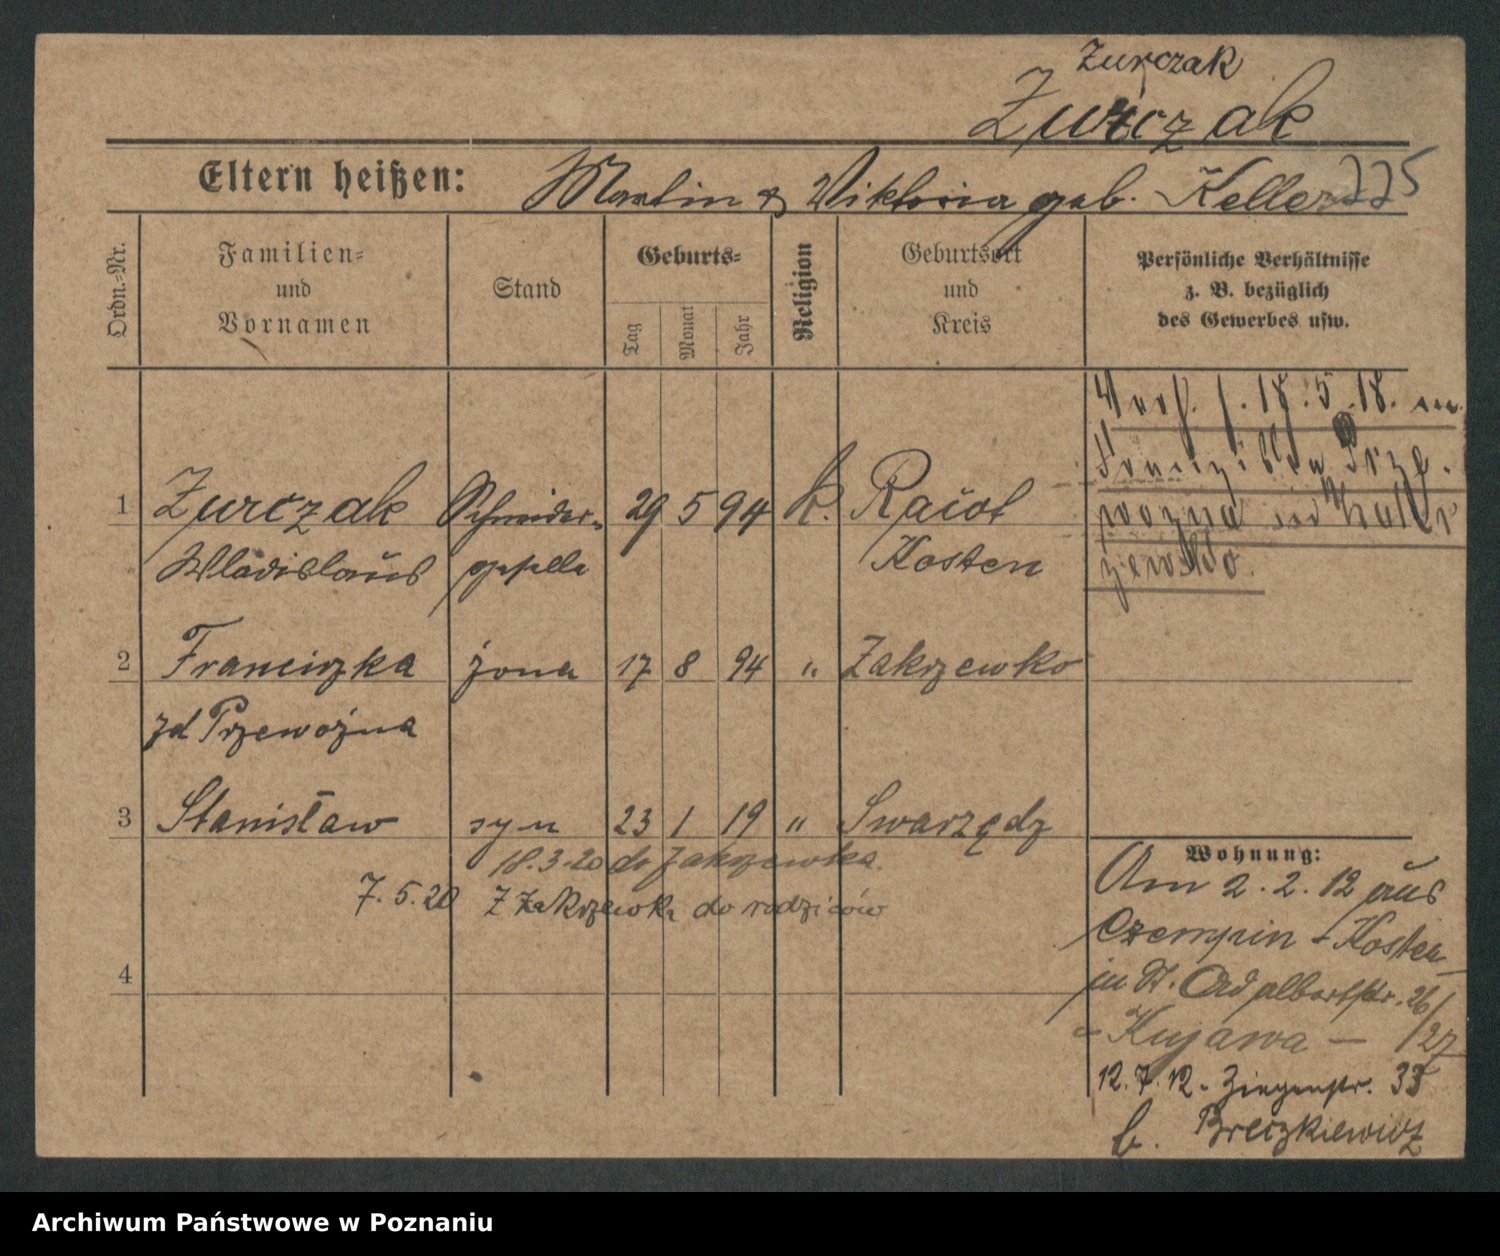 Żurczak
Żurczak
Eltern heißen: Martin & Viktoria geb. Keller 775
Ordn.-Nr.
Familien-
und
Vornamen
Stand
Geburts-
Tag
Monat
Jahr
Religion
Geburtsort
und
Kreis
Persönliche Verhältnisse
z. B. bezüglich
des Gewerbes usw.
18.5.18. m.
Franziska Prze-
wozna
1 Żurczak Schneider- 29 5 94 k. Racot
Wladislaus geselle Kosten
2 Franciszka żona 17 8 94 " Zakrzewko
zd Przewoźna
3 Stanisław syn 23 1 19 " Swarzędz
18.3.20 do Zakrzewka.
7.5.20 Z Zakrzewka do rodziców
4
Wohnung:
Am 2.2.12 aus
Czempin - Kosten
in St. Adalbertstr. 26/27
- Kujawa -
12.7.12. Ziegenstr. 33
b. Breczkiewicz
Archiwum Państwowe w Poznaniu